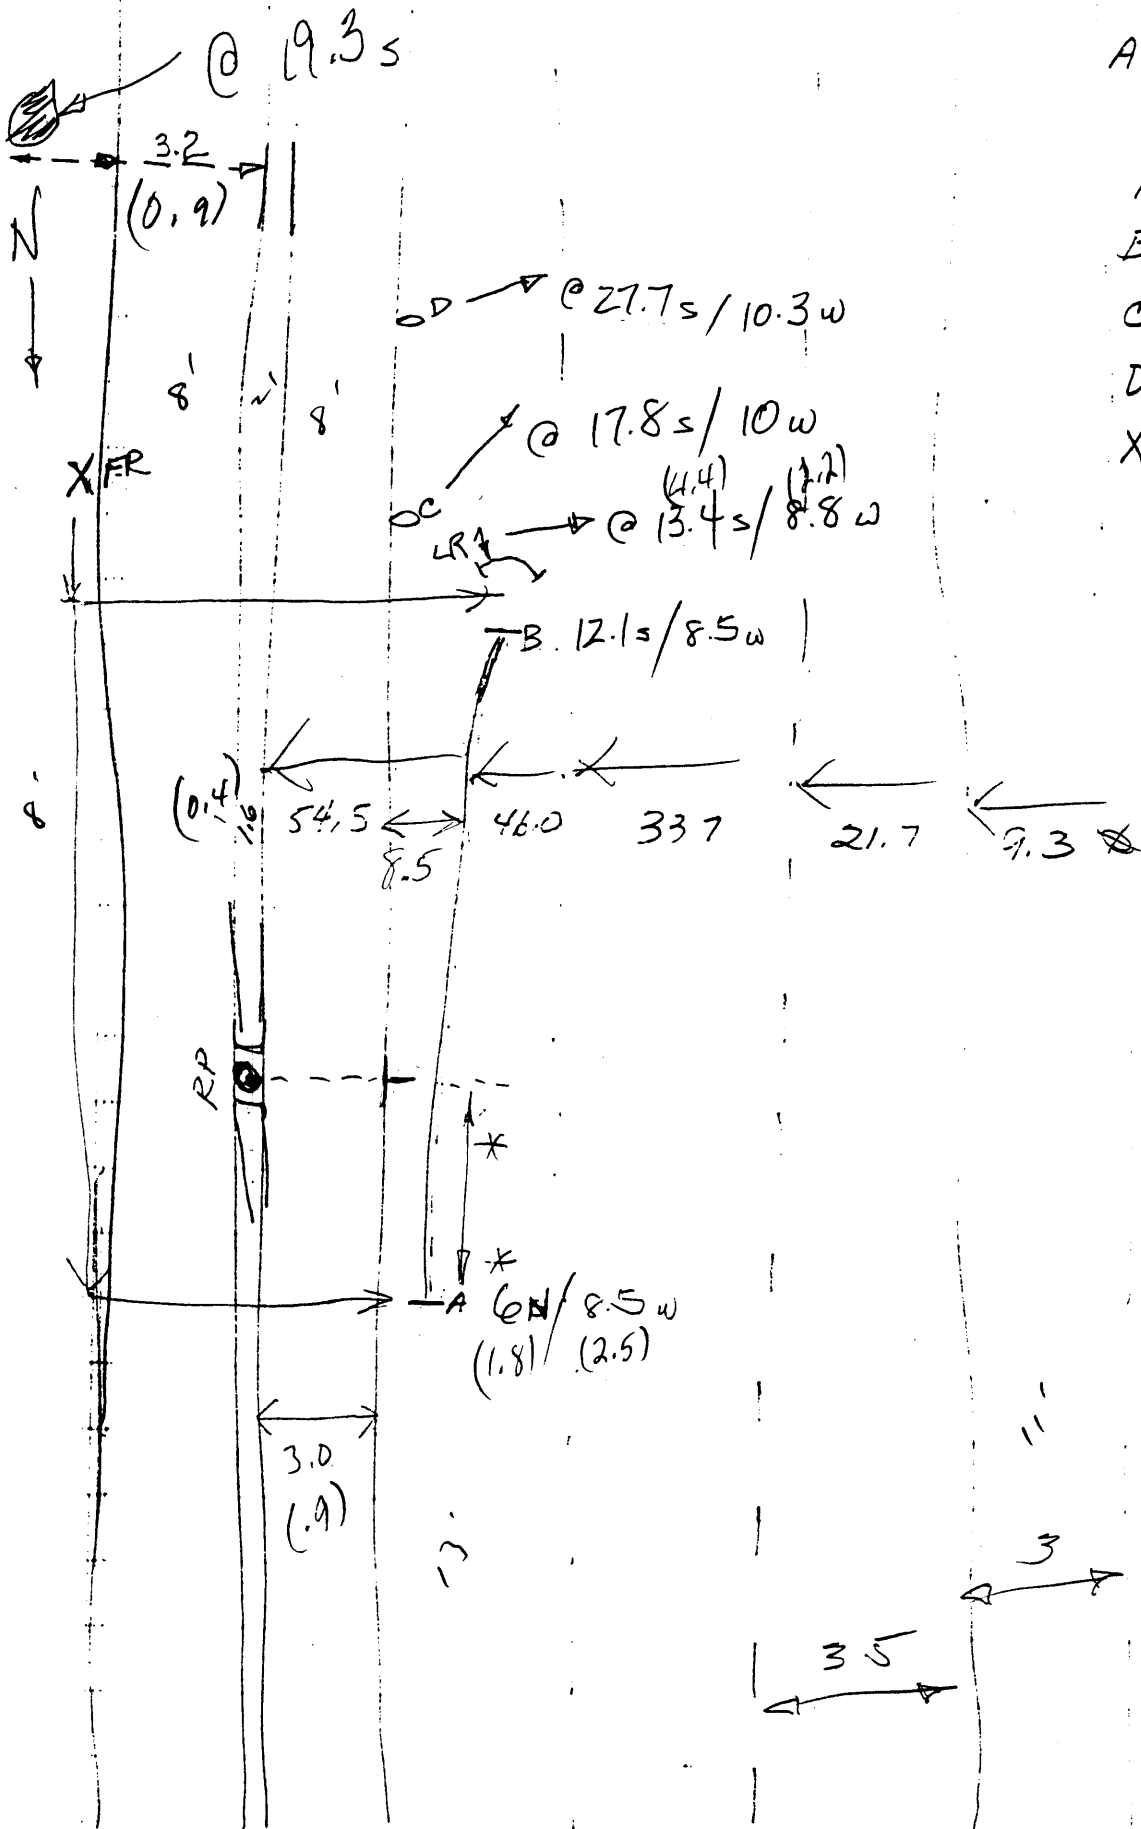 @ 19.3 s
A
3.2
(0.9)
N
B
D @ 27.7 s / 10.3 w
C
8' 2' 8'
D
@ 17.8 s / 10 w
X
X FR
(4.4) (2.2)
C
LR @ 13.4 s / 8.8 w
B. 12.1 s / 8.5 w
8'
(0.4)
1.6
54.5 46.0 33.7 21.7 9.3
8.5
RP
*
*
A 6N / 8.5 w
(1.8) / (2.5)
11'
3.0
(.9)
13'
3
3.5